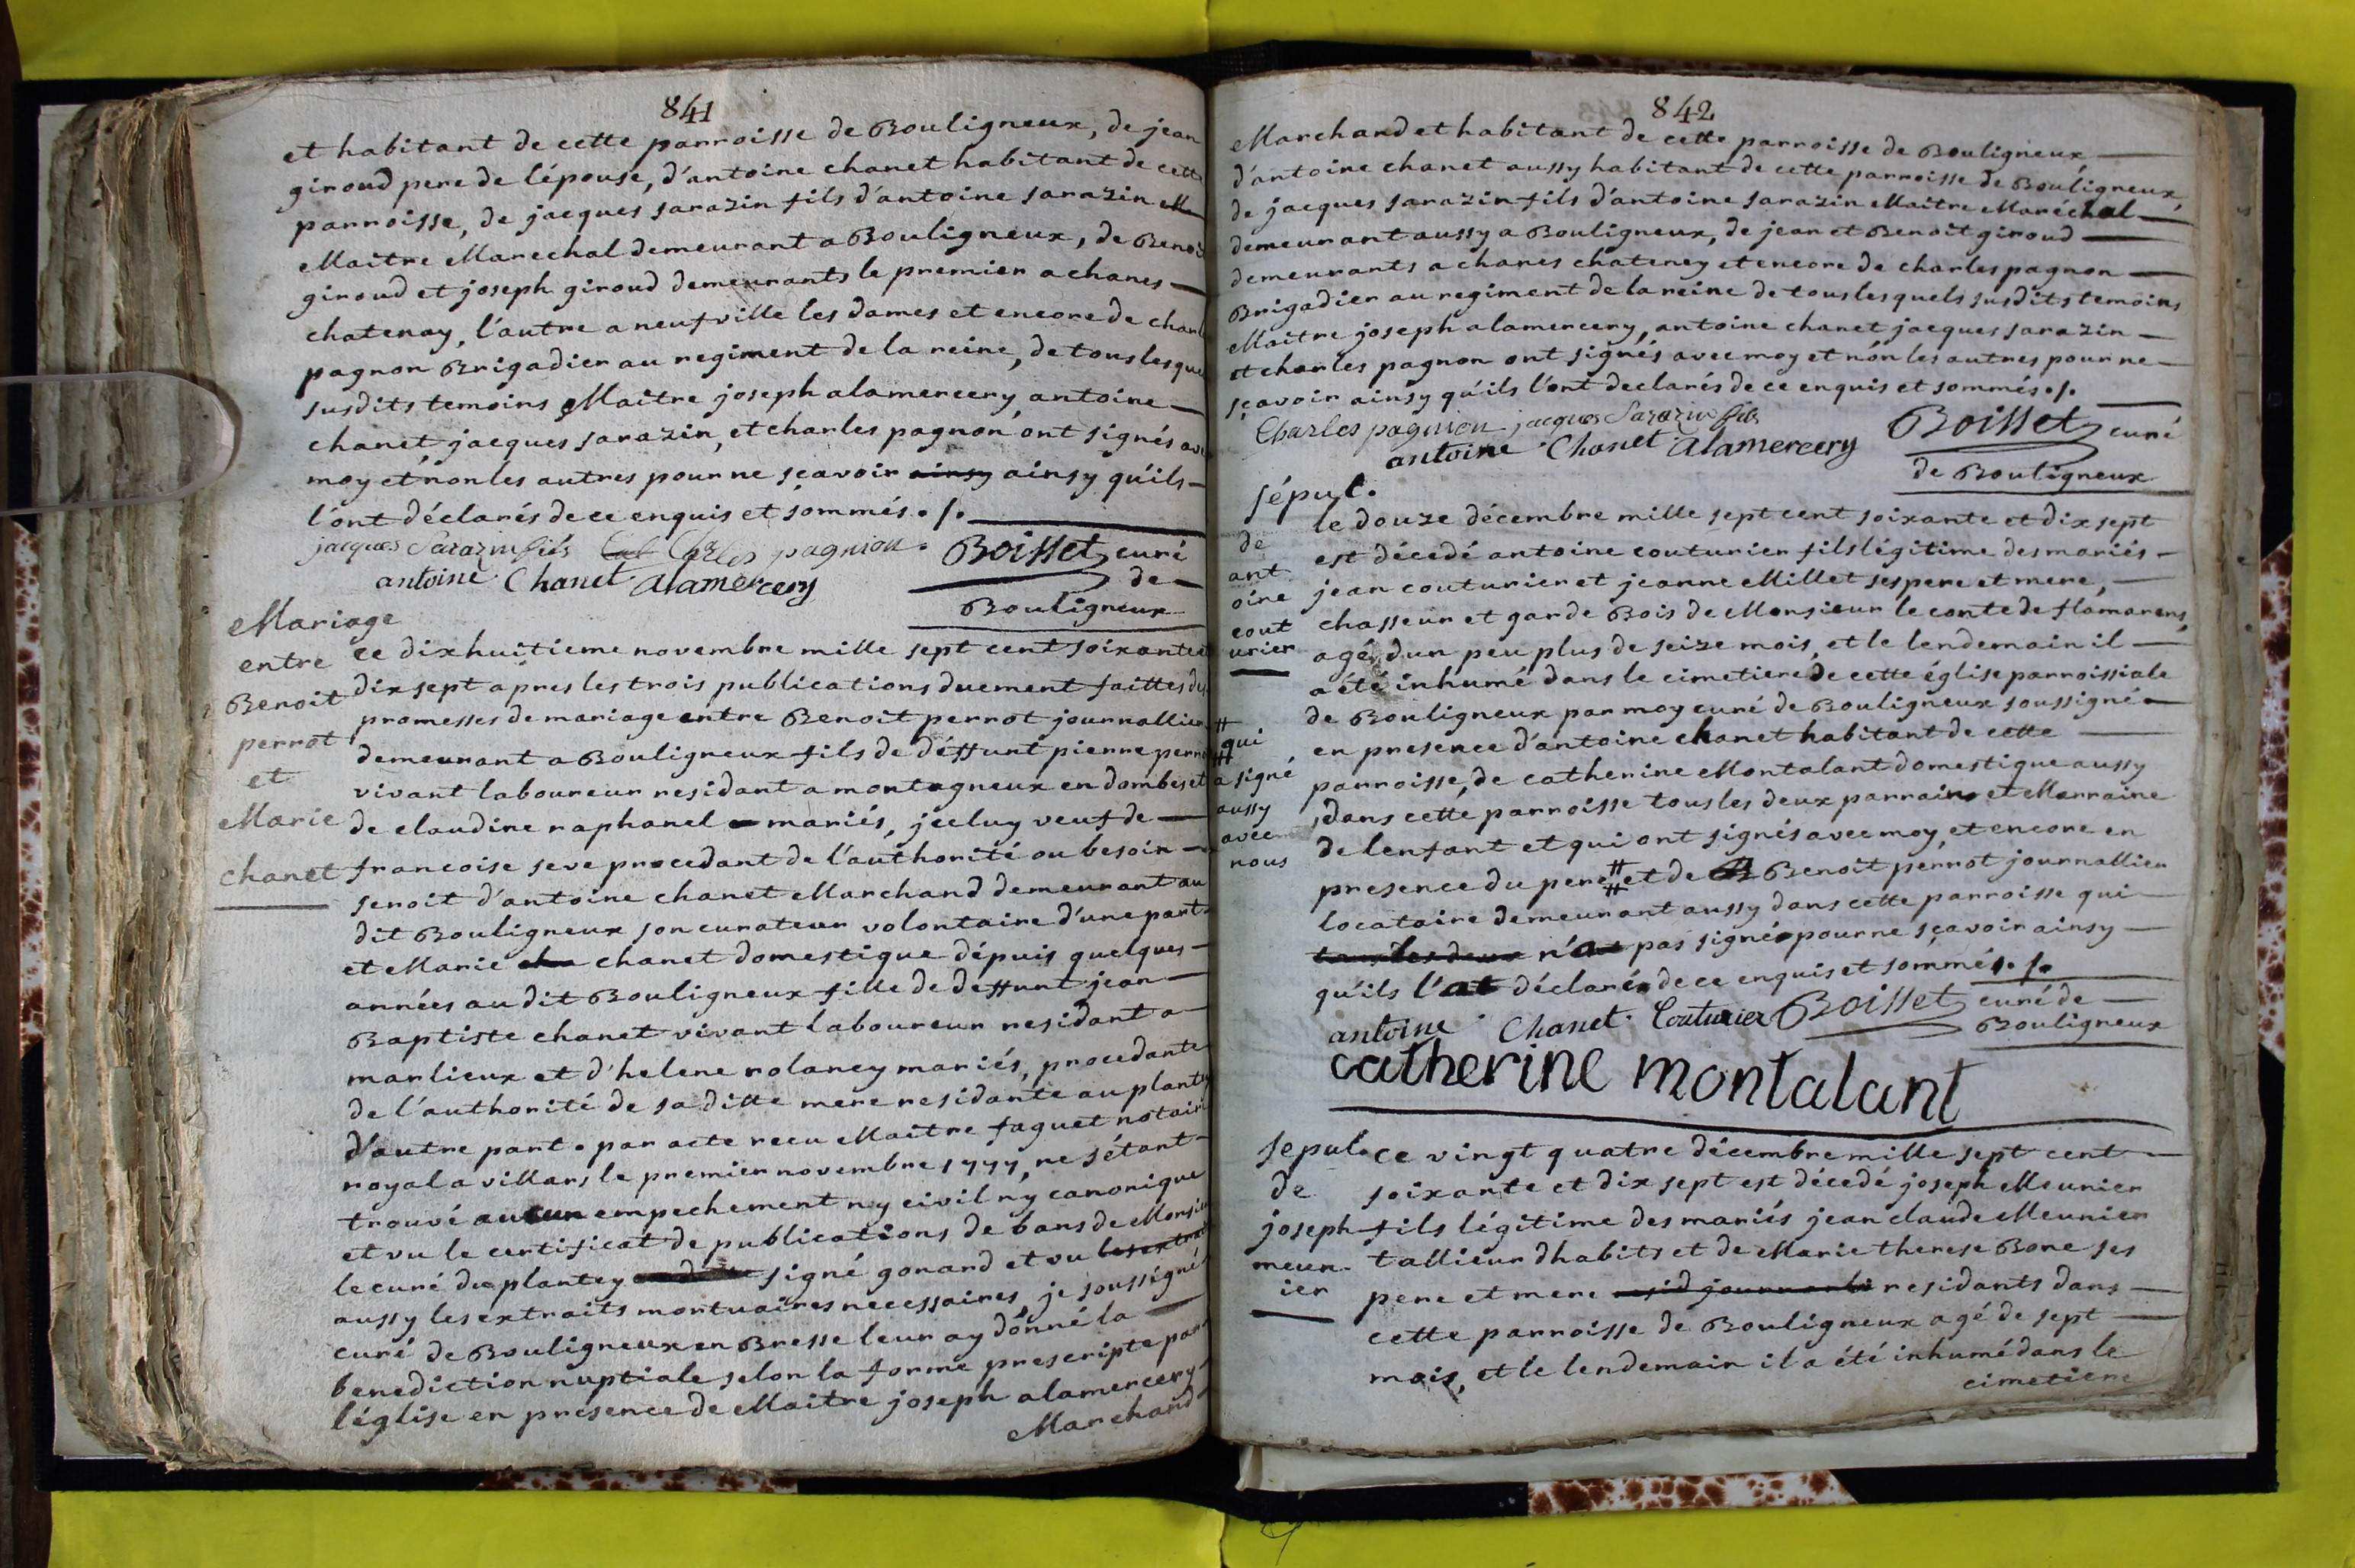 841
et habitant de cette parroisse de Bouligneux, de jean
giroud pere de lépouse, d'antoine chanet habitant de cette
parroisse, de jacques sarazin fils d'antoine sarazin
Maitre Marechal demeurant a Bouligneux, de Benoi
giroud et joseph giroud demeurants le premier a chanes
chatenay, l'autre a neufville les dames et encore de charl
pagnon Brigadier au regiment de la reine, de tous lesque
susdits temoins Maitre joseph alamercery, antoine
chanet, jacques sarazin, et charles pagnon, ont signés av
moy et non les autres pour ne sçavoir ainsy ainsy qu'ils
l'ont déclarés de ce enquis et sommés ./.
jacques Sarazin fils Charles pagnion. Boisset curé
antoine Chanet alamercery de
Bouligneux
Mariage
entre
Benoit
perrot
et
Marie
chanet
ce dixhuitieme novembre mille sept cent soixante et
dix sept apres les trois publications duement faittes de
promesses de mariage entre Benoit perrot journallier
demeurant a Bouligneux fils de déffunt pierre perro
vivant laboureur residant a montagneux en dombes et
de claudine raphanel mariés, jceluy veuf de
francoise seve procedant de l'authorité ou besoin
seroit d'antoine chanet Marchand demeurant au
dit Bouligneux son curateur volontaire d'une part
et Marie cha chanet domestique dépuis quelques
années au dit Bouligneux fille de deffunt jean
Baptiste chanet vivant laboureur residant a
marlieux et d'helene rolancy mariés, procedante
de l'authorité de sa ditte mere residante au plantey
d'autre part. par acte recu Maitre faguet notaire
royal a villars le premier novembre 1777, ne s'étant
trouvé aucun empechement ny civil ny canonique
et vu le certificat de publications de bans de Monsieu
le curé du plantey signé gonard et vu les extrai
aussy les extraits mortuaires necessaires, je soussigné
curé de Bouligneux en Bresse leur ay donné la
benediction nuptiale selon la forme prescripte par
l'église en presence de Maitre joseph alamercery
Marchand
842
Marchand et habitant de cette parroisse de Bouligneux
d'antoine chanet aussy habitant de cette parroisse de Bouligneux,
de jacques sarazin fils d'antoine sarazin Maitre Maréchal
demeurant aussy a Bouligneux, de jean et Benoit giroud
demeurants a chanes chateney et encore de charles pagnon
Brigadier au regiment de la reine de tous lesquels susdits temoins
Maitre joseph alamercery, antoine chanet jacques sarazin
et charles pagnon ont signés avec moy et non les autres pour ne
sçavoir ainsy qu'ils l'ont declarés de ce enquis et sommés ./.
Charles pagnion jacques Sarazin fils Boisset curé
antoine Chanet alamercery
de Bouligneux
sépul.
de
ant
oine
cout
urier
le douze décembre mille sept cent soixante et dix sept
est décedé antoine couturier fils légitime des mariés
jean couturier et jeanne Millet ses pere et mere,
chasseur et garde Bois de Monsieur le conte de flamarens,
agé dun peu plus de seize mois, et le lendemain il
a été inhumé dans le cimetiere de cette église parroissiale
de Bouligneux par moy curé de Bouligneux soussigné
en presence d'antoine chanet habitant de cette
parroisse, de catherine Montalant domestique aussy
dans cette parroisse tous les deux parrain et Marraine
de lenfant et qui ont signés avec moy, et encore en
presence du pere # et de Benoit perrot journallier
locataire demeurant aussy dans cette parroisse qui
tous les deux n'at pas signé pour ne sçavoir ainsy
qu'ils l'at déclaré de ce enquis et sommé ./.
#
qui
#
a signé
aussy
avec
nous
antoine Chanet Couturier Boisset curé de
Bouligneux
catherine montalant
sepul.
de
joseph
meun-
ier
ce vingt quatre décembre mille sept cent
soixante et dix sept est décedé joseph Meunier
fils légitime des mariés jean claude Meunier
tallieur dhabits et de Marie therese Bone ses
pere et mere residants dans
cette parroisse de Bouligneux agé de sept
mois, et le lendemain il a été inhumé dans le
cimetiere